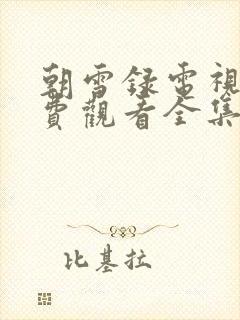 朝雪録電視
費觀看全集
比基拉